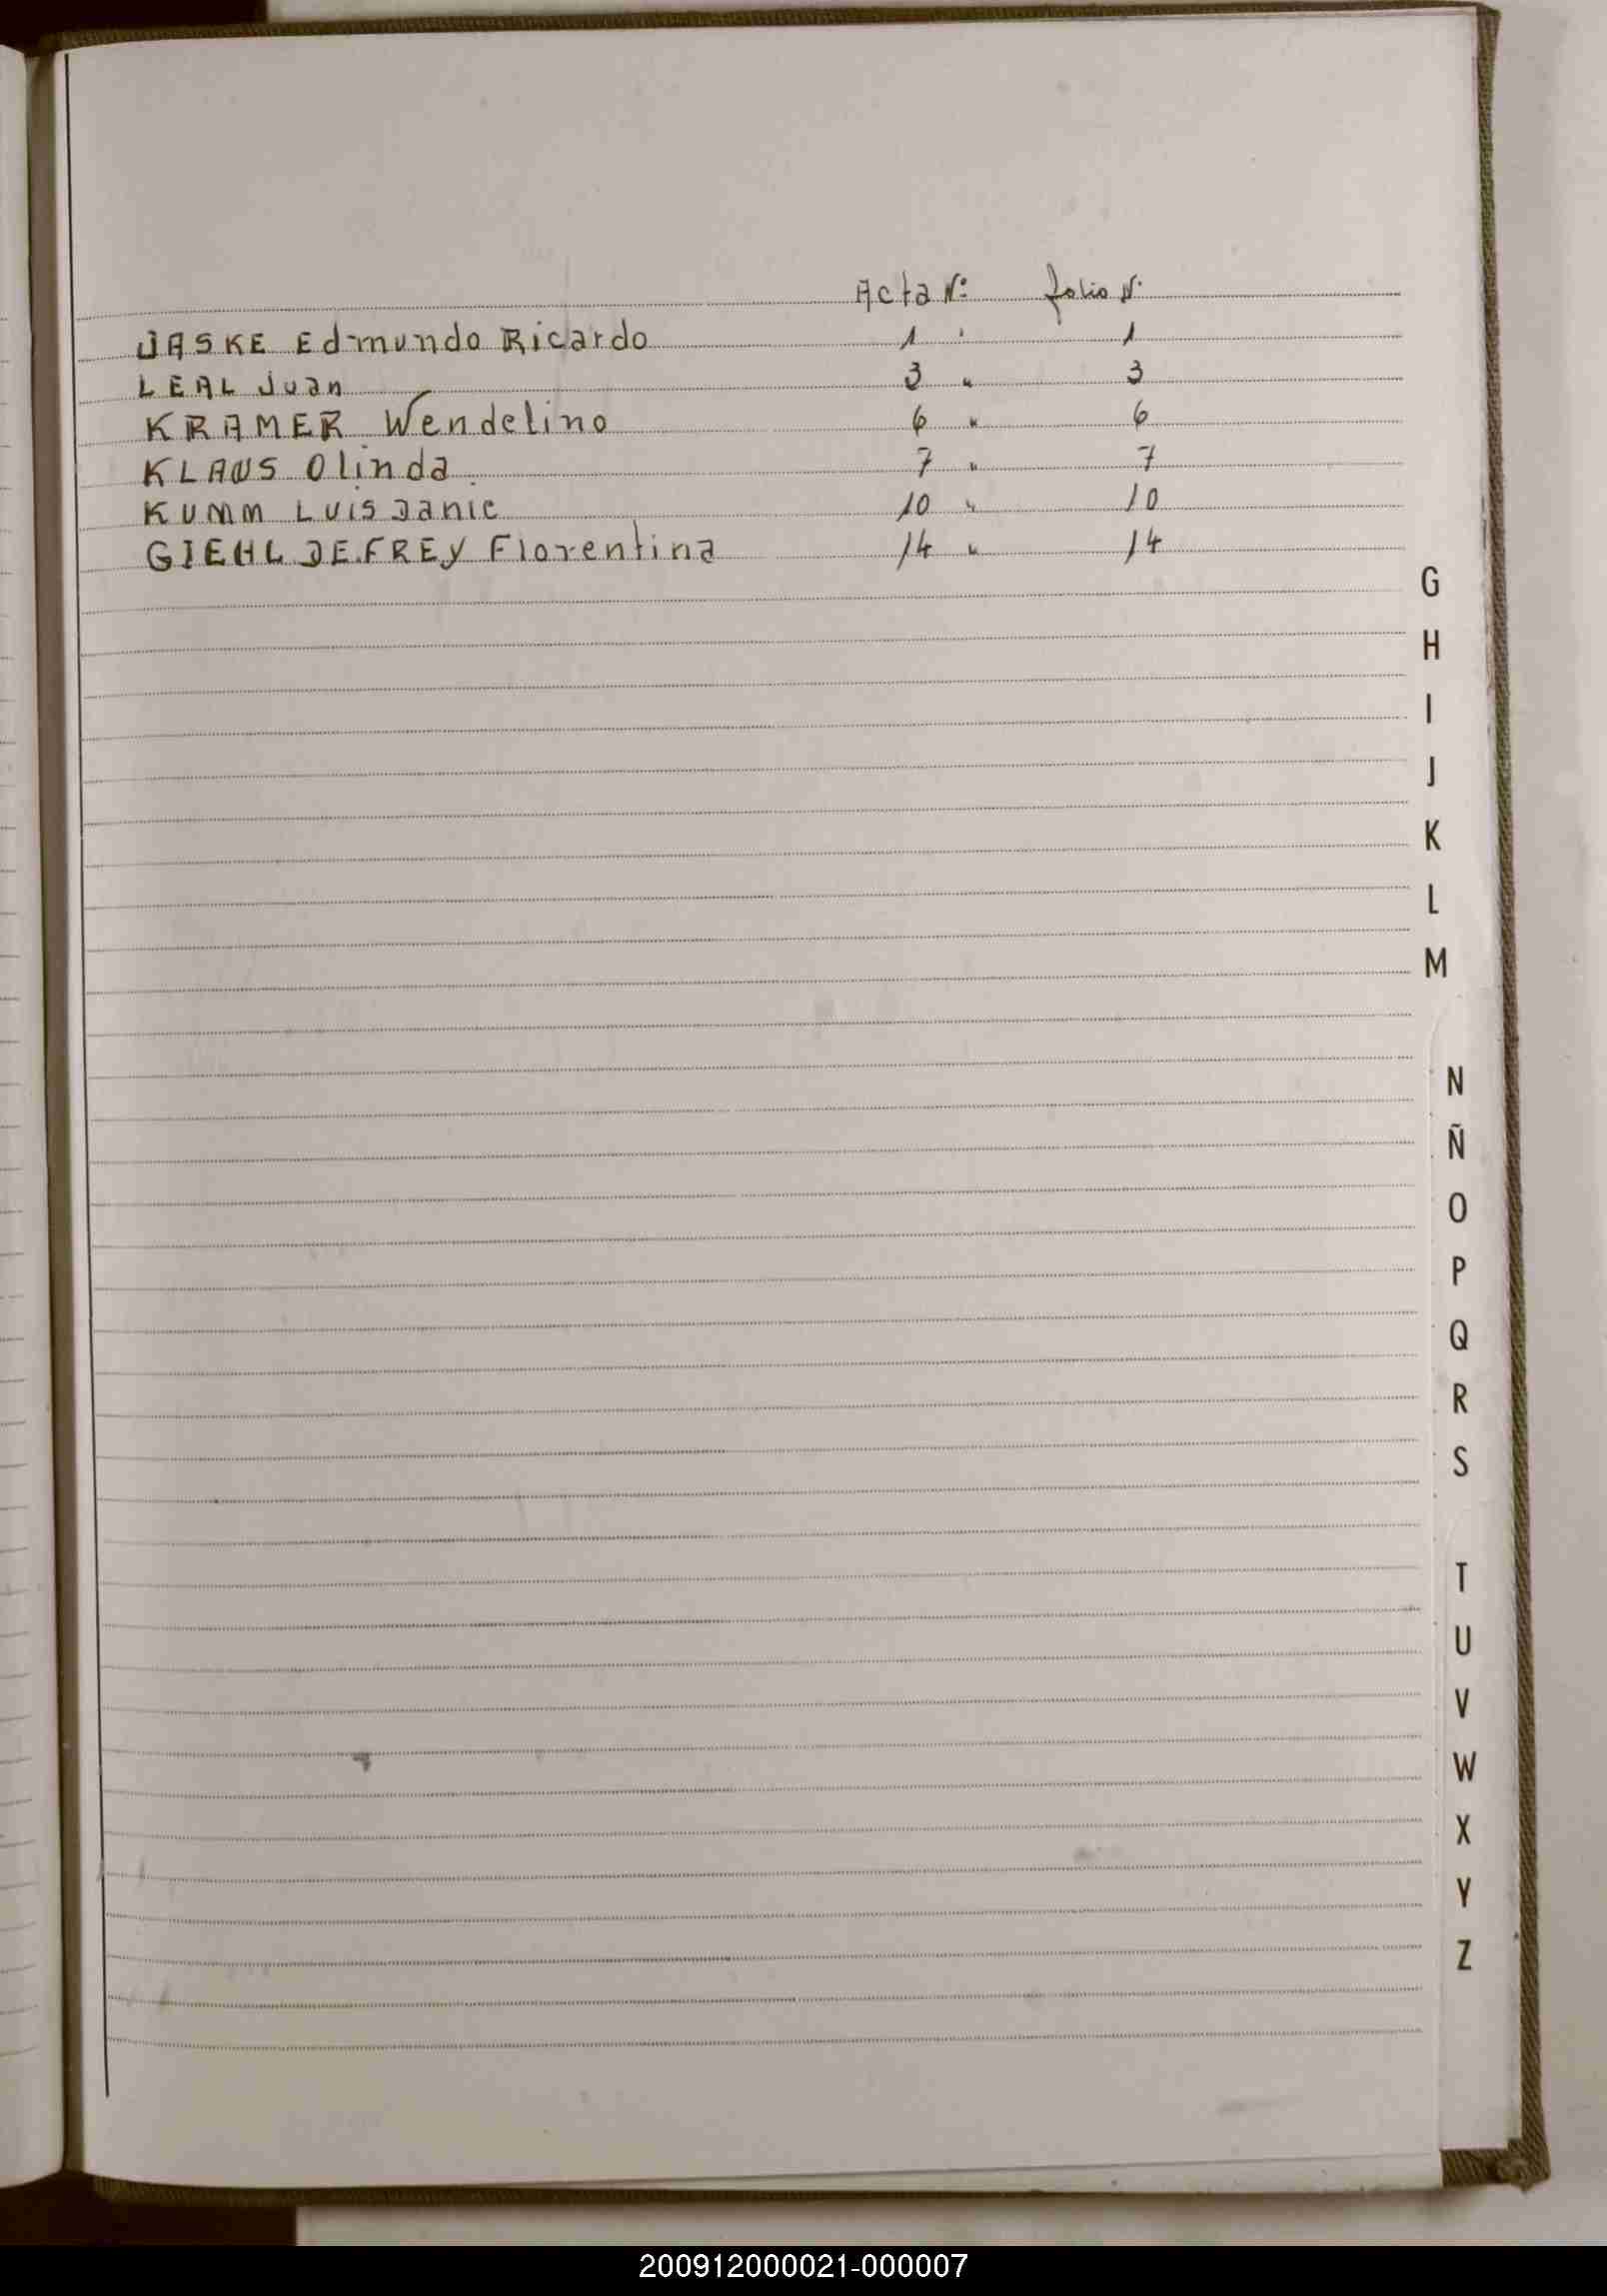 Acta Nº folio N.
JASKE Edmundo Ricardo 1 " 1
LEAL Juan 3 " 3
KRAMER Wendelino 6 " 6
KLAUS Olinda 7 " 7
KUMM LUIS Janic 10 " 10
GIEHL DE FREY Florentina 14 " 14
G
H
I
J
K
L
M
N
Ñ
O
P
Q
R
S
T
U
V
W
X
Y
Z
200912000021-000007